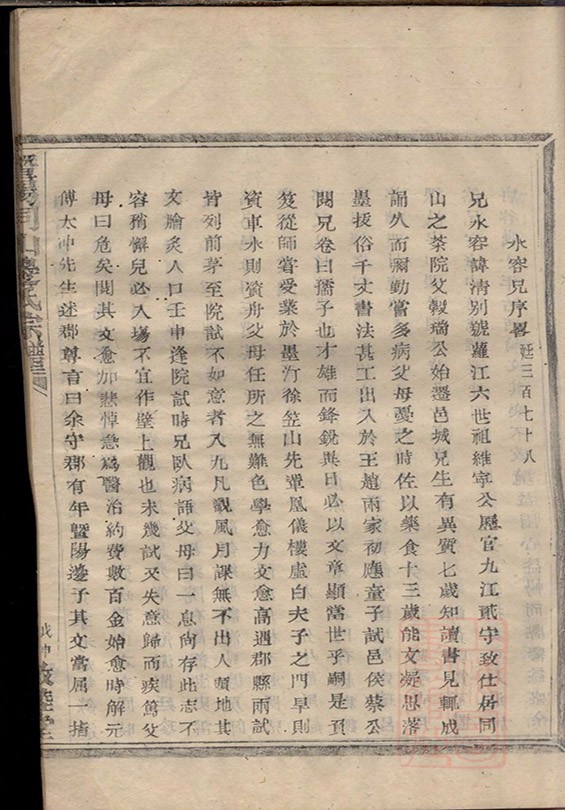 水容兄序畧 廷三百七十八
兄水容諱清別號蘿江六世祖維寧公歷官九江貳守致仕居同
山之荼院父毅瑞公始遷邑城兄生有異質七歲知讀書見輒成
誦久而彌勤嘗多病父母憂之時佐以藥食十三歲能文凝思落
墨拔俗千丈書法甚工出入於王趙兩家初應童子試邑侯蔡公
閱兄卷曰孺子也才雄而鋒銳異日必以文章顯當世乎嗣是頁
笈從師嘗受業於墨汀徐笠山先輩鳳儀樓虛白夫子之門旱則
資車水則資舟父母任所之無難色學愈力文愈高遇郡縣兩試
皆列前茅至院試不如意者入九凡觀風月課無不出人頭地其
文膾炙人口壬申逢院試時兄臥病語父母曰一息尚存此志不
容稍懈兒必入場不宜作壁上觀也未幾試又失意歸而疾篤父
母曰危矣閱其文愈加悲悼急為醫治約費數百金始愈時解元
傅太冲先生述郡尊言曰余守郡有年暨陽邊子其文當屬一指
暨陽同山邊氏宗譜
戊申 敍倫堂